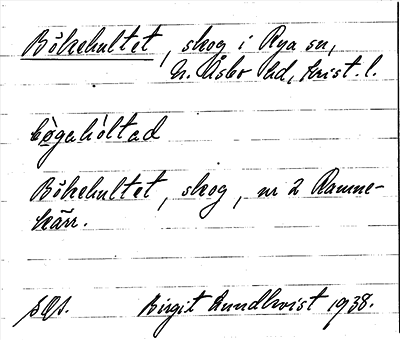 Bökehultet, skog i Rya sn,
N. Åsbo hd, Krist. l.
bögahòltad
Bökehultet, skog, nr 2 Ramne-
kärr.
Birgit Lundkvist 1938.